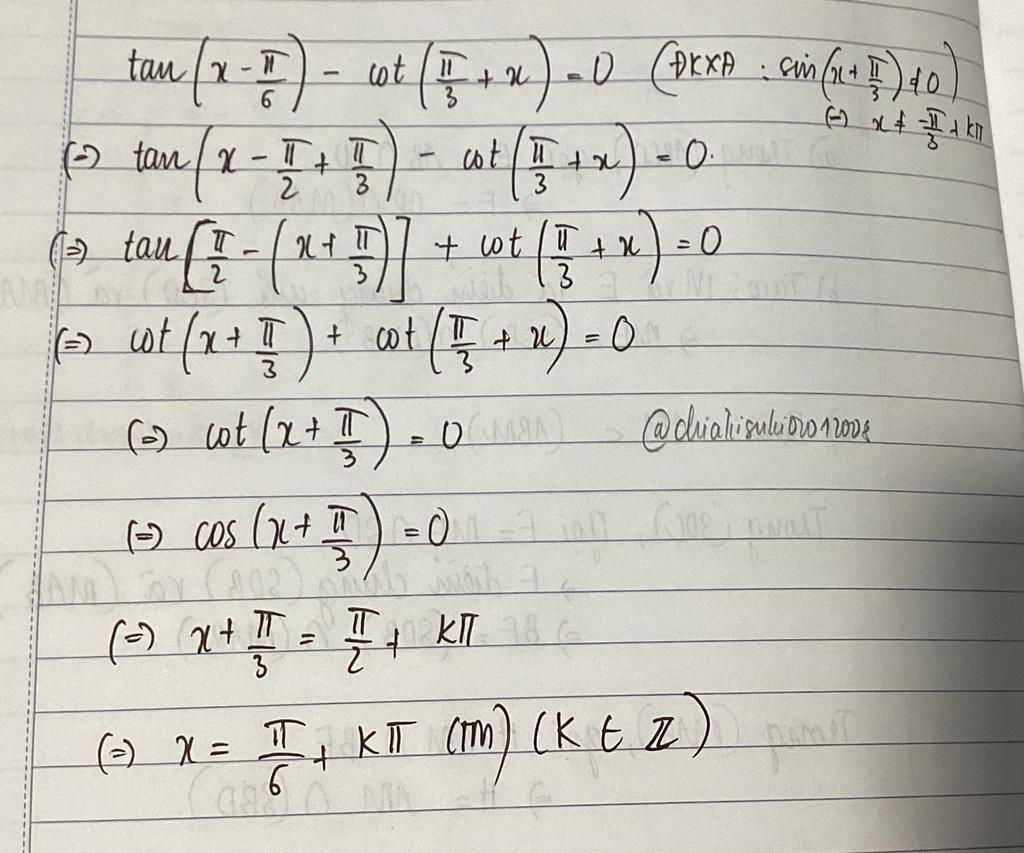 tan(x - π/6) - cot(π/3 + x) = 0 (ĐKXĐ : sin(x + π/3) ≠ 0)
(=) x ≠ -π/3 + kπ
(=) tan(x - π/2 + π/3) - cot(π/3 + x) = 0.
(=) tan[π/2 - (x + π/3)] + cot(π/3 + x) = 0
(=) cot(x + π/3) + cot(π/3 + x) = 0
(=) cot(x + π/3) = 0
(=) cos(x + π/3) = 0
(=) x + π/3 = π/2 + kπ
(=) x = π/6 + kπ (TM) (K ∈ Z)